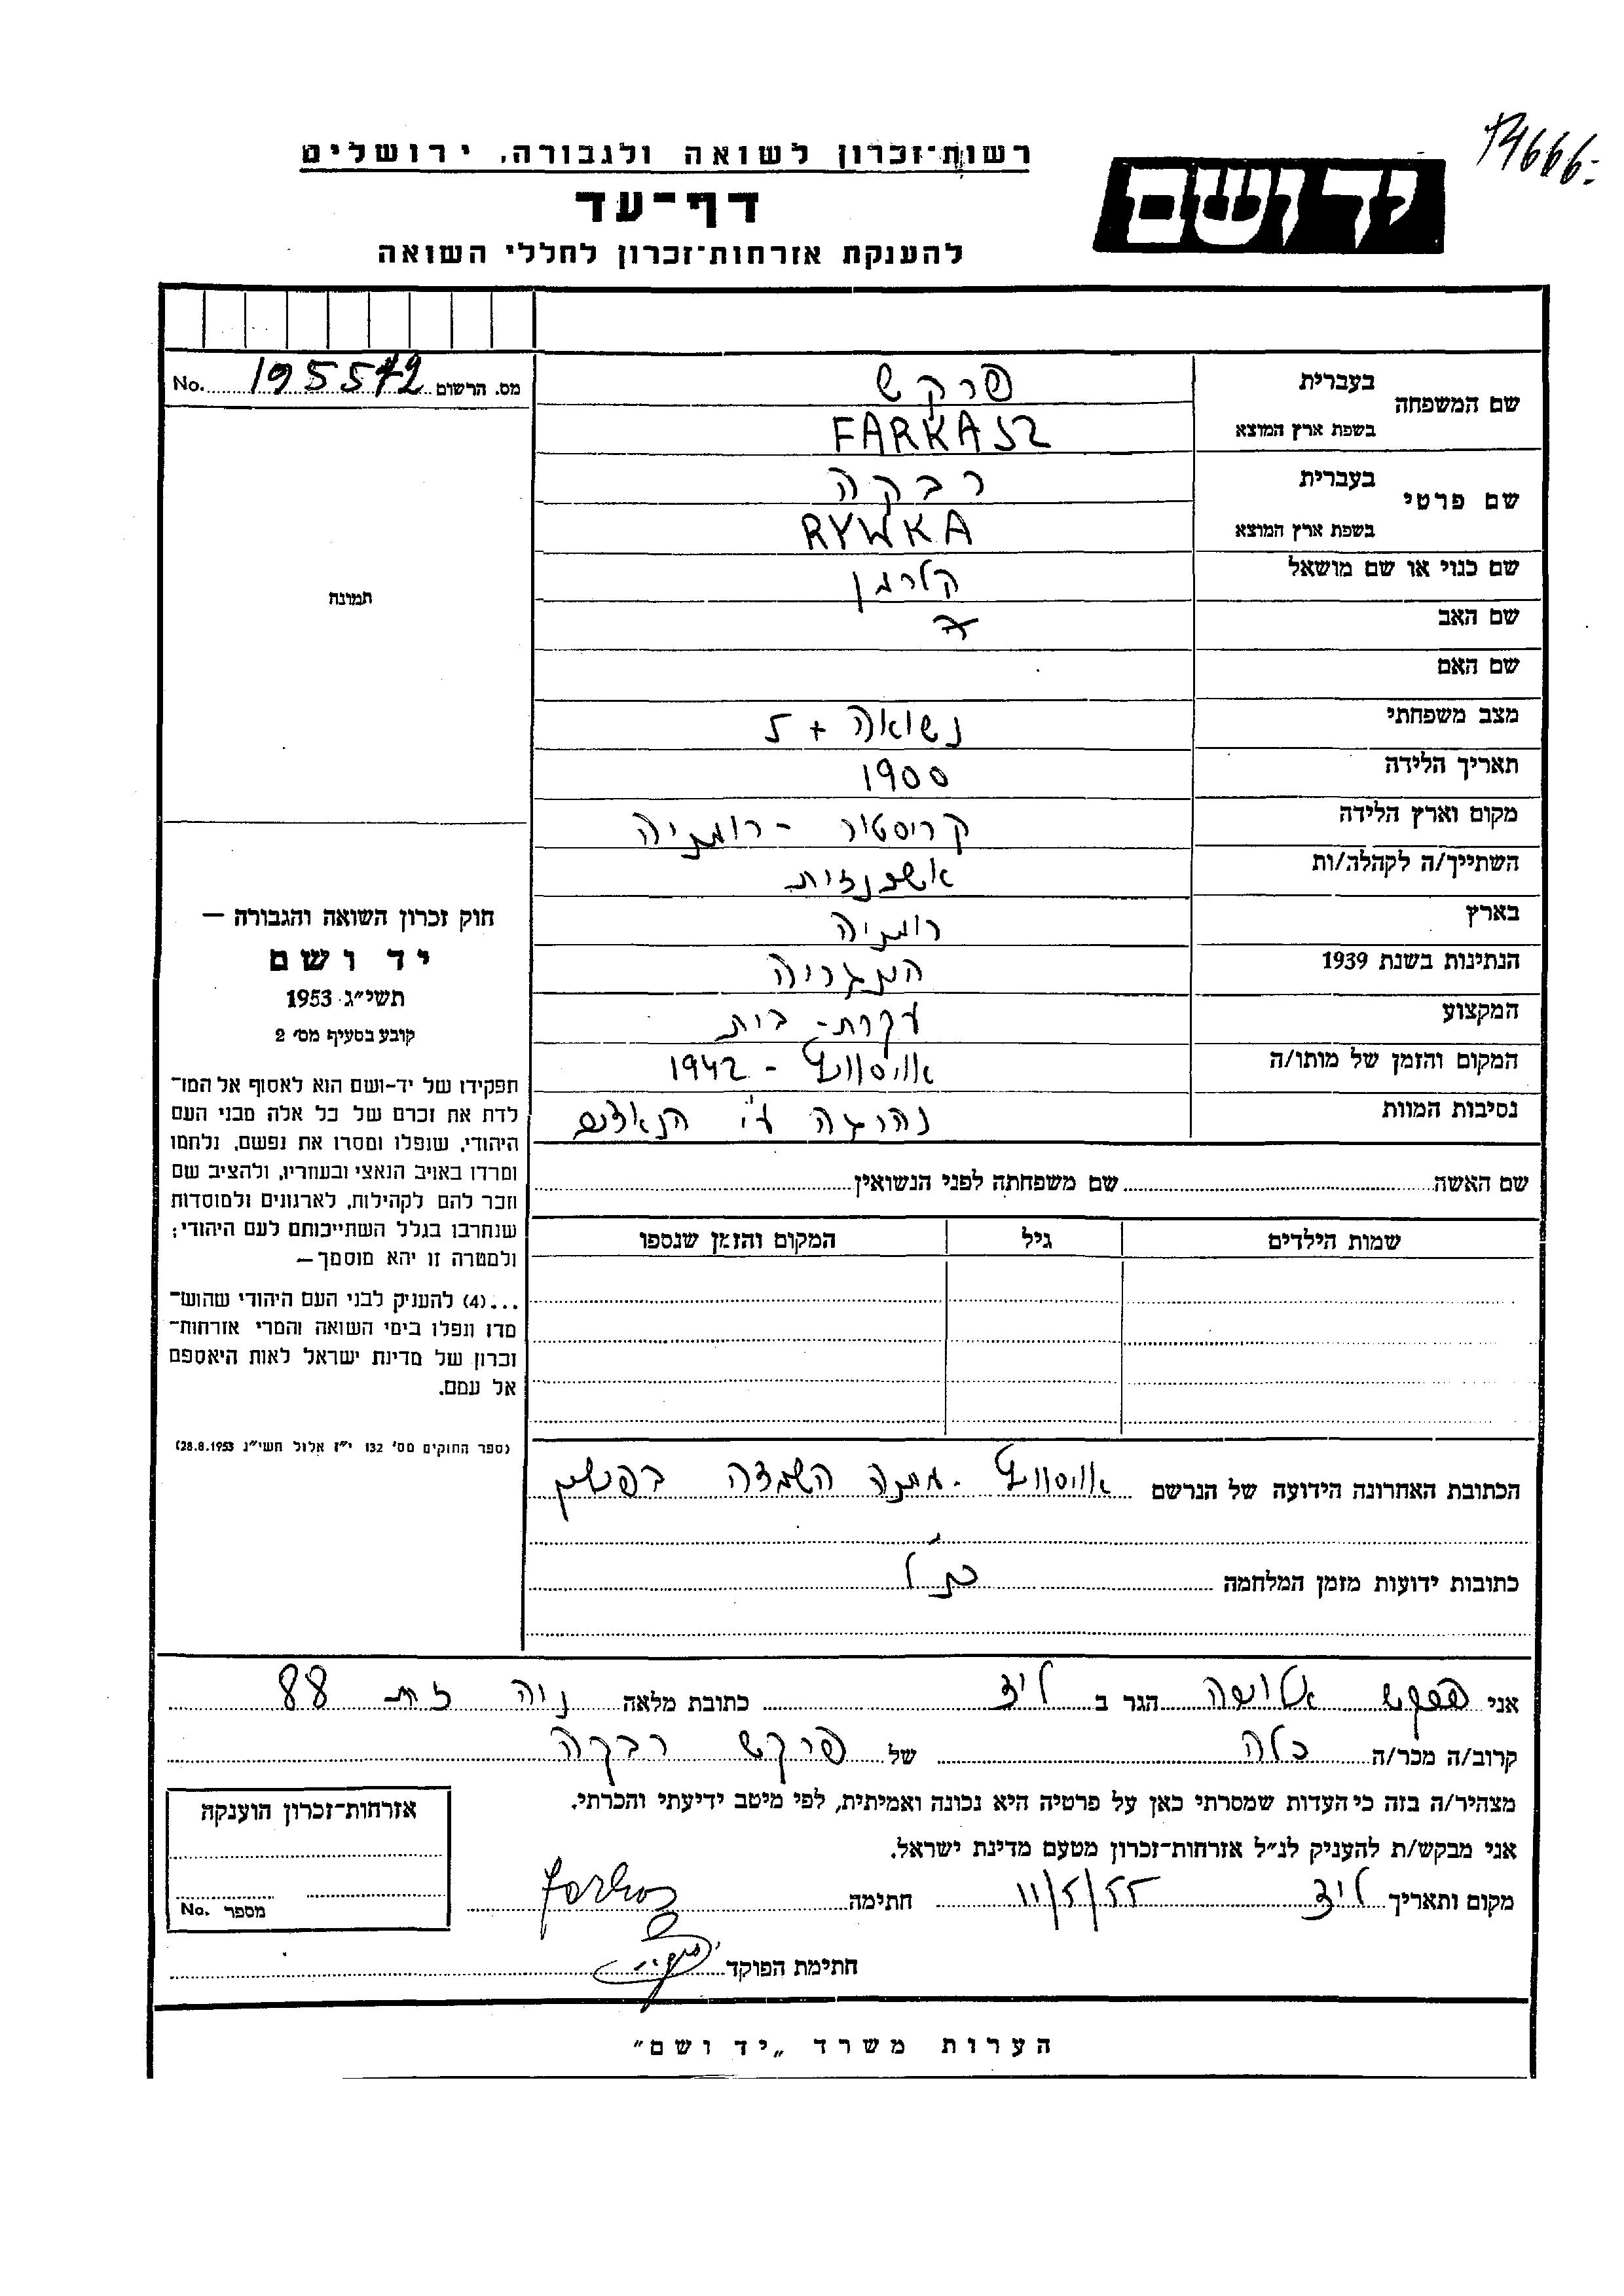 רשות־זכרון לשואה ולגבורה, ירושלים
דף־עד
להענקת אזרחות־זכרון לחללי השואה
יד ושם
מס. הרשום 195572 No.
שם המשפחה
בעברית פרקש
בשפת ארץ המוצא FARKASZ
שם פרטי
בעברית רבקה
בשפת ארץ המוצא RYWKA
שם כנוי או שם מושאל
שם האב
שם האם
מצב משפחתי נשואה + 5
תאריך הלידה 1900
מקום וארץ הלידה קריסטור - רומניה
השתייך/ה לקהלה/ות אשכנזית
בארץ רומניה
הנתינות בשנת 1939 הונגריה
המקצוע עקרת-בית
המקום והזמן של מותו/ה 1942 -
נסיבות המוות נהרגה ע"י הנאצים
שם האשה שם משפחתה לפני הנשואין
שמות הילדים גיל המקום והזמן שנספו
הכתובת האחרונה הידועה של הנרשם מחנה השמדה
כתובות ידועות מזמן המלחמה
תמונה
חוק זכרון השואה והגבורה —
יד ושם
תשי״ג 1953
קובע בסעיף מס׳ 2
תפקידו של יד־ושם הוא לאסוף אל המו־
לדת את זכרם של כל אלה מבני העם
היהודי, שנפלו ומסרו את נפשם, נלחמו
ומרדו באויב הנאצי ובעוזריו, ולהציב שם
וזכר להם לקהילות, לארגונים ולמוסדות
שנחרבו בגלל השתייכותם לעם היהודי;
ולמטרה זו יהא מוסמך —
...(4) להעניק לבני העם היהודי שהוש־
מדו ונפלו בימי השואה והמרי אזרחות־
זכרון של מדינת ישראל לאות היאספם
אל עמם.
(ספר החוקים מס׳ 132 י״ז אלול תשי״ג 28.8.1953)
אני פרקש הגר ב כתובת מלאה נוה זית 88
קרוב/ה מכר/ה כלה של פרקש רבקה
מצהיר/ה בזה כי העדות שמסרתי כאן על פרטיה היא נכונה ואמיתית, לפי מיטב ידיעתי והכרתי.
אני מבקש/ת להעניק לנ״ל אזרחות־זכרון מטעם מדינת ישראל.
מקום ותאריך 11/5/55 חתימה Farkas
חתימת הפוקד
אזרחות־זכרון הוענקה
מספר No.
הערות משרד „יד ושם"